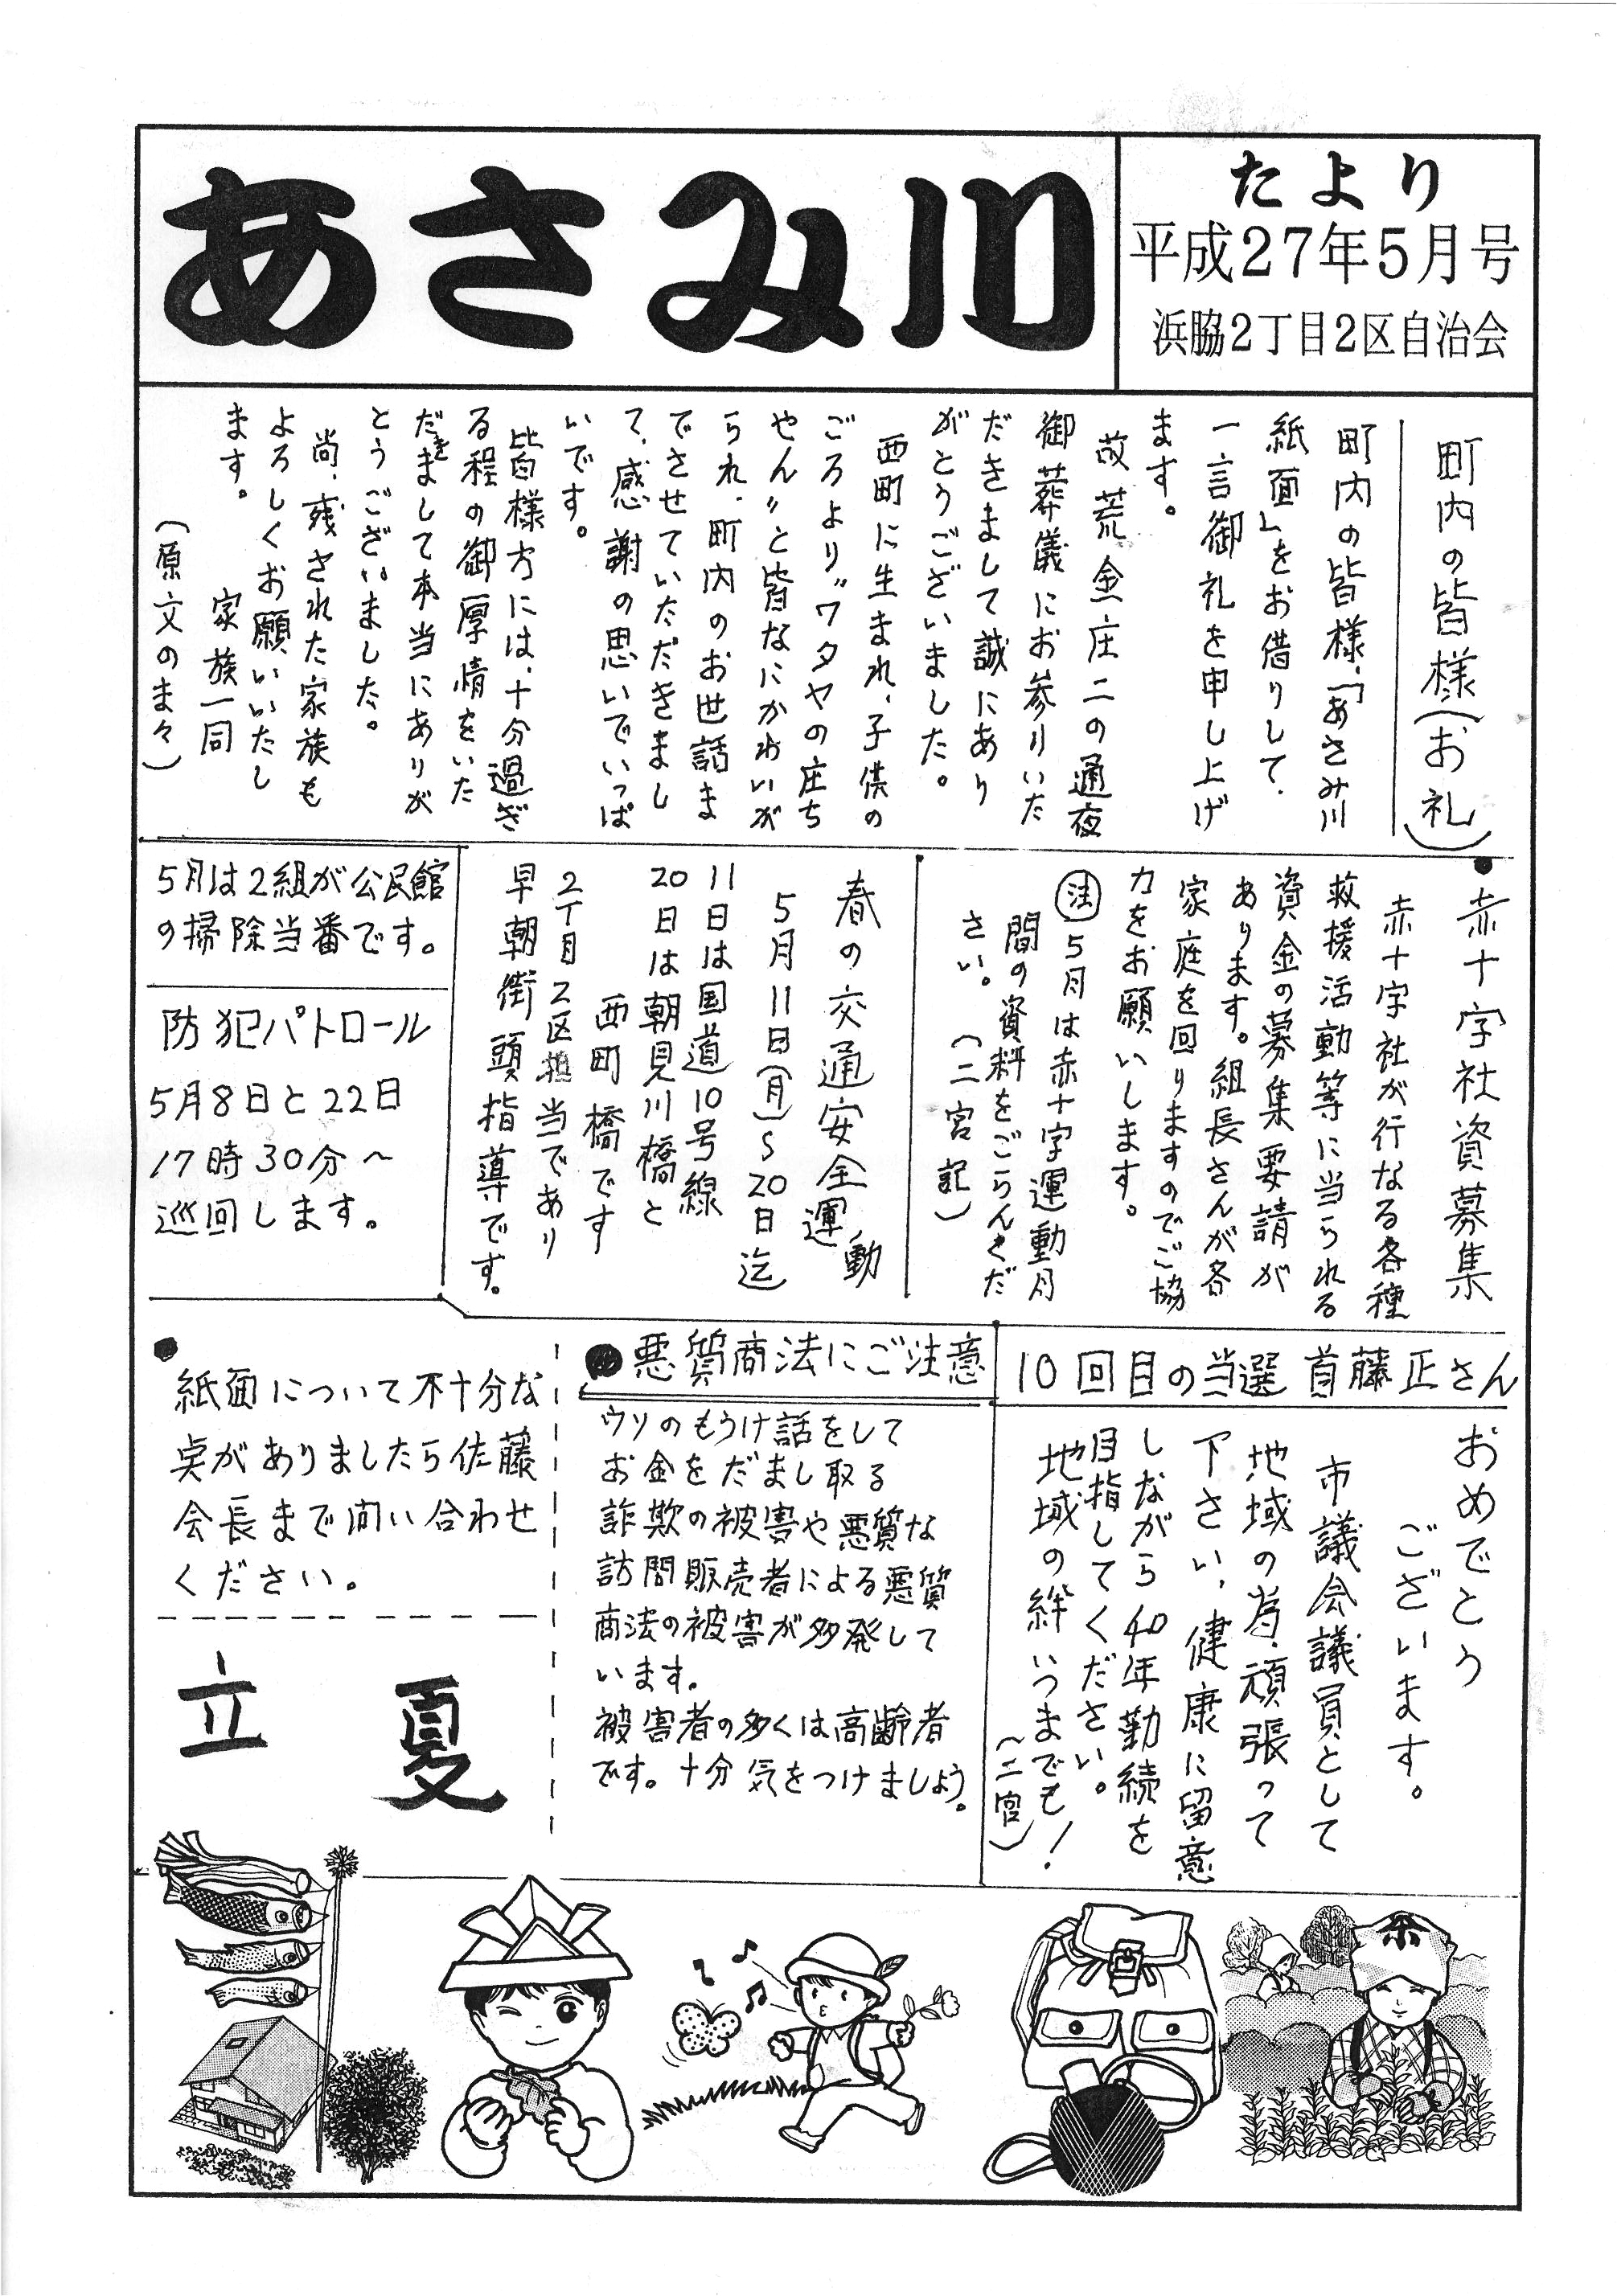 あさみ川
たより
平成27年5月号
浜脇2丁目2区自治会
町内の皆様(お礼)
町内の皆様、「あさみ川
紙面」をお借りして、
一言御礼を申し上げ
ます。
故荒金庄二の通夜
御葬儀にお参りいた
だきまして誠にあり
がとうございました。
西町に生まれ、子供の
ごろより〝ワタヤの庄ち
やん〟と皆なにかわいが
られ、町内のお世話ま
でさせていただきまし
て、感謝の思いでいっぱ
いです。
皆様方には、十分過ぎ
る程の御厚情をいた
だきまして本当にありが
とうございました。
尚、残された家族も
よろしくお願いいたし
ます。
家族一同
(原文のまゝ)
●赤十字社資募集
赤十字社が行なる各種
救援活動等に当られる
資金の募集要請が
あります。組長さんが各
家庭を回りますのでご協
力をお願いします。
注 5月は赤十字運動月
間の資料をごらんくだ
さい。 (二宮記)
春の交通安全運動
5月11日(月)~20日迄
11日は国道10号線
20日は朝見川橋と
西町橋です
2丁目2区担当であり
早朝街頭指導です。
5月は2組が公民館
の掃除当番です。
防犯パトロール
5月8日と22日
17時30分~
巡回します。
10回目の当選 首藤正さん
おめでとう
ございます。
市議会議員として
地域の為、頑張って
下さい、健康に留意
しながら40年勤続を
目指してください。
地域の絆いつまでも!
(二宮)
●悪質商法にご注意
ウソのもうけ話をして
お金をだまし取る
詐欺の被害や悪質な
訪問販売者による悪質
商法の被害が多発して
います。
被害者の多くは高齢者
です。十分気をつけましょう。
●
紙面について不十分な
点がありましたら佐藤
会長まで問い合わせ
ください。
立夏
茶